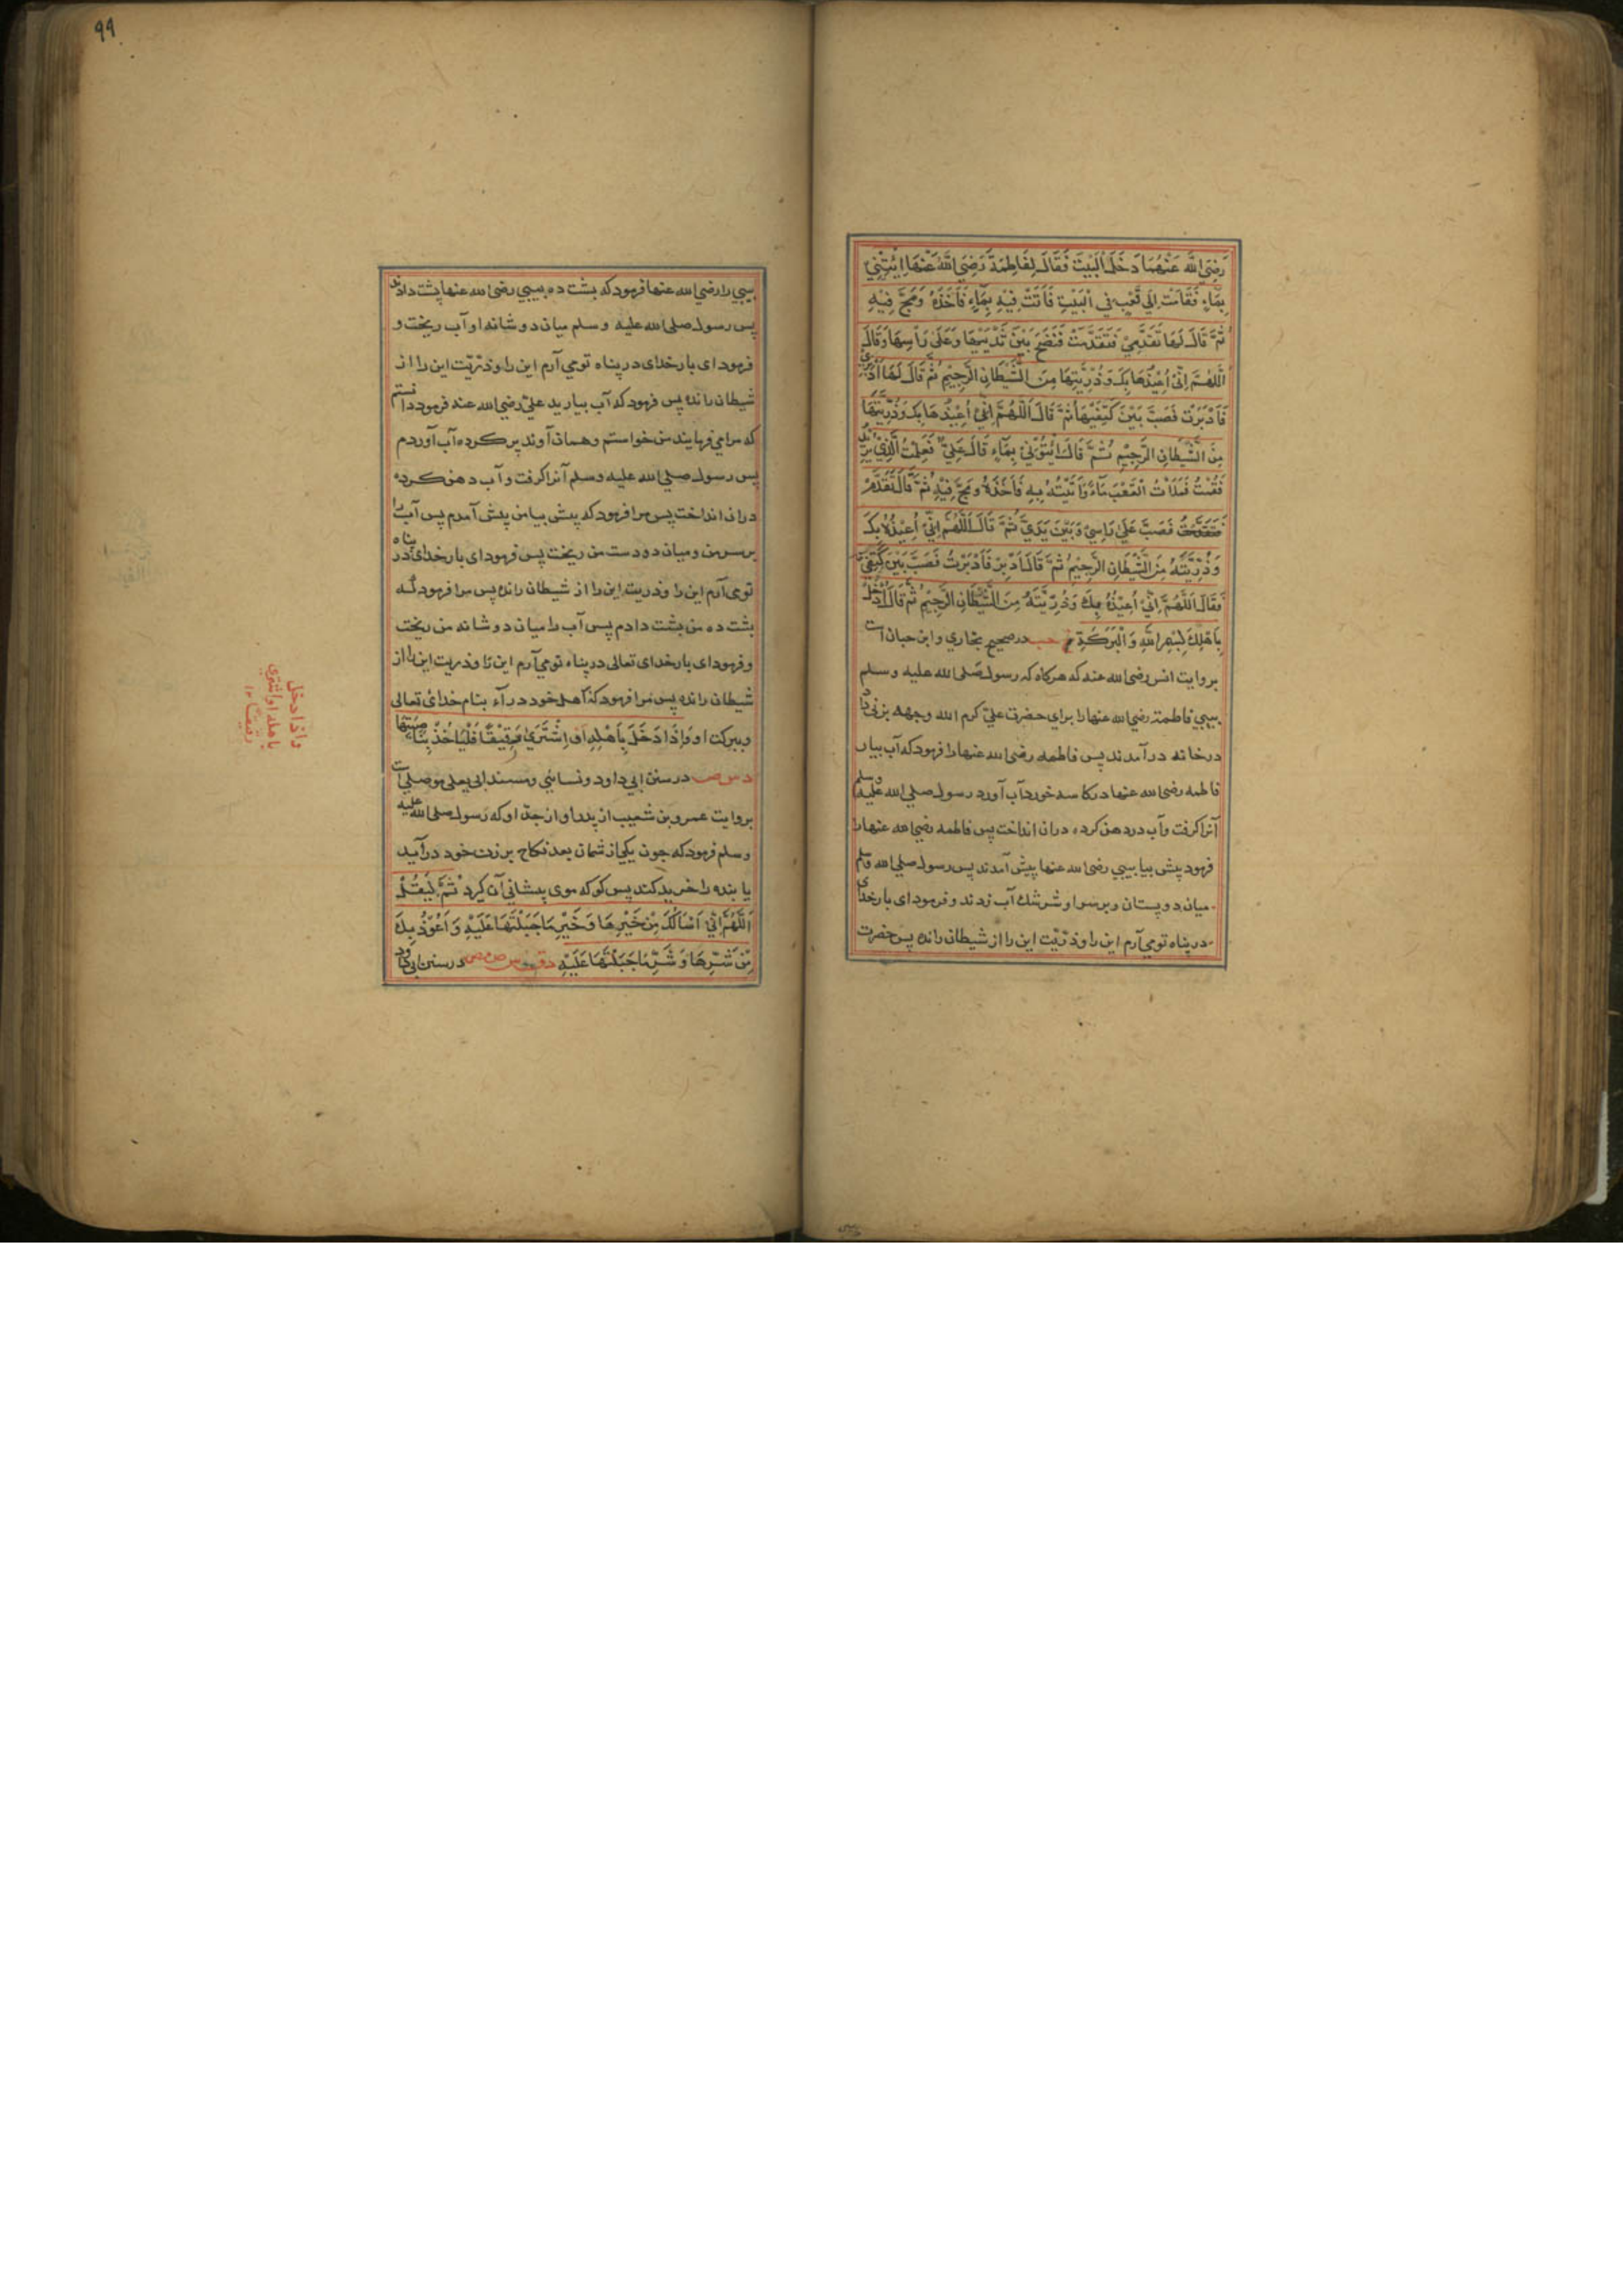 رَضِيَ اللّٰهُ عَنْهُمَا دَخَلَ الْبَيْتَ فَقَالَ لِفَاطِمَةَ رَضِيَ اللّٰهُ عَنْهَا ائْتِنِيْ
بِمَاءٍ فَقَامَتْ اِلٰى قَعْبٍ فِي الْبَيْتِ فَاَتَتْ فِيْهِ بِمَاءٍ فَاَخَذَهُ وَمَجَّ فِيْهِ
ثُمَّ قَالَ لَهَا تَقَدَّمِيْ فَتَقَدَّمَتْ فَنَضَحَ بَيْنَ ثَدْيَيْهَا وَعَلٰى رَأْسِهَا وَقَالَ
اَللّٰهُمَّ اِنِّيْ اُعِيْذُهَا بِكَ وَذُرِّيَّتَهَا مِنَ الشَّيْطَانِ الرَّجِيْمِ ثُمَّ قَالَ لَهَا اَدْبِرِيْ
فَاَدْبَرَتْ فَصَبَّ بَيْنَ كَتِفَيْهَا ثُمَّ قَالَ اَللّٰهُمَّ اِنِّيْ اُعِيْذُهَا بِكَ وَذُرِّيَّتَهَا
مِنَ الشَّيْطَانِ الرَّجِيْمِ ثُمَّ قَالَ ائْتُوْنِيْ بِمَاءٍ قَالَ عَلِيٌّ فَعَلِمْتُ الَّذِيْ يُرِيْدُ
فَقُمْتُ فَمَلَأْتُ الْقَعْبَ مَاءً وَاَتَيْتُهُ بِهِ فَاَخَذَهُ وَمَجَّ فِيْهِ ثُمَّ قَالَ تَقَدَّمْ
فَتَقَدَّمْتُ فَصَبَّ عَلٰى رَاْسِيْ وَبَيْنَ يَدَيَّ ثُمَّ قَالَ اَللّٰهُمَّ اِنِّيْ اُعِيْذُهُ بِكَ
وَذُرِّيَّتَهُ مِنَ الشَّيْطَانِ الرَّجِيْمِ ثُمَّ قَالَ اَدْبِرْ فَاَدْبَرْتُ فَصَبَّ بَيْنَ كَتِفَيَّ
فَقَالَ اَللّٰهُمَّ اِنِّيْ اُعِيْذُهُ بِكَ وَذُرِّيَّتَهُ مِنَ الشَّيْطَانِ الرَّجِيْمِ ثُمَّ قَالَ اُدْخُلْ
بِاَهْلِكَ بِسْمِ اللّٰهِ وَالْبَرَكَةِ خ حب در صحیح بخاري و ابن حبان است
بروایت انس رضی الله عنه که هرکاه که رسول صلی الله علیه وسلم
بیبي فاطمة رضي الله عنها را برای حضرت علي کرم الله وجهه بزنی داد
در خانه درآمدند پس فاطمه رضی الله عنها را فرمود که آب بیار
فاطمه رضی الله عنها در کاسه خورد آب آورد رسول صلی الله علیه وسلم
آنرا گرفت وآب در دهن کرده دران انداخت پس فاطمه رضي الله عنها را
فرمود پیش بیا بیبي رضی الله عنها پیش آمدند پس رسول صلی الله وسلم
میان دو پستان و بر سر او شرشك آب زدند و فرمود ای بار خدای
در پناه تو می آرم این را و ذرّیّت این را از شیطان رانده پس حضرت
99
بیبي را رضي الله عنها فرمود که پشت ده بیبي رضی الله عنها پشت دادند
پس رسول صلی الله علیه وسلم میان دو شانه او آب ریخت و
فرمود ای بار خدای در پناه تو می آرم این را و ذرّیّت این را از
شیطان رانده پس فرمود که آب بیارید علي رضي الله عنه فرمود دانستم
که مرا می فرمایند من خواستم وهمان آوند پر کرده آب آوردم
پس رسول صلی الله علیه وسلم آنرا گرفت و آب دهن کرده
دران انداخت پس مرا فرمود که پیش بیا من پیش آمدم پس آب را
بر سر من و میان دو دست من ریخت پس فرمود ای بار خدای در پناه
تو می آرم این را و ذریت این را از شیطان رانده پس مرا فرمود که
پشت ده من پشت دادم پس آب را میان دو شانه من ریخت
و فرمود ای بار خدای تعالی در پناه تو می آرم این را و ذریت این را از
شیطان رانده پس مرا فرمود که اهل خود درآء بنام خدای تعالی
و ببرکت او وَاِذَا دَخَلَ بِاَهْلِهِ اَوِ اشْتَرٰى رَقِيْقًا فَلْيَاْخُذْ بِنَاصِيَتِهَا
د س ص در سنن ابی داود و نسائي و مسند ابی یعلی موصلي است
بروایت عمرو بن شعیب از پدر او از جدّ او که رسول صلی الله علیه
وسلم فرمود که چون یکی از شمان بعد نکاح بر زن خود درآید
یا بنده را خرید کند پس کو که موی پیشانی آن گیرد ثُمَّ لْيَقُلْ
اَللّٰهُمَّ اِنِّيْ اَسْأَلُكَ مِنْ خَيْرِهَا وَخَيْرِ مَا جَبَلْتَهَا عَلَيْهِ وَاَعُوْذُ بِكَ
مِنْ شَرِّهَا وَشَرِّ مَا جَبَلْتَهَا عَلَيْهِ د ق س ص مص در سنن ابی داود
واذا دخل
باهله او اشتري
رقيقًا ١٢